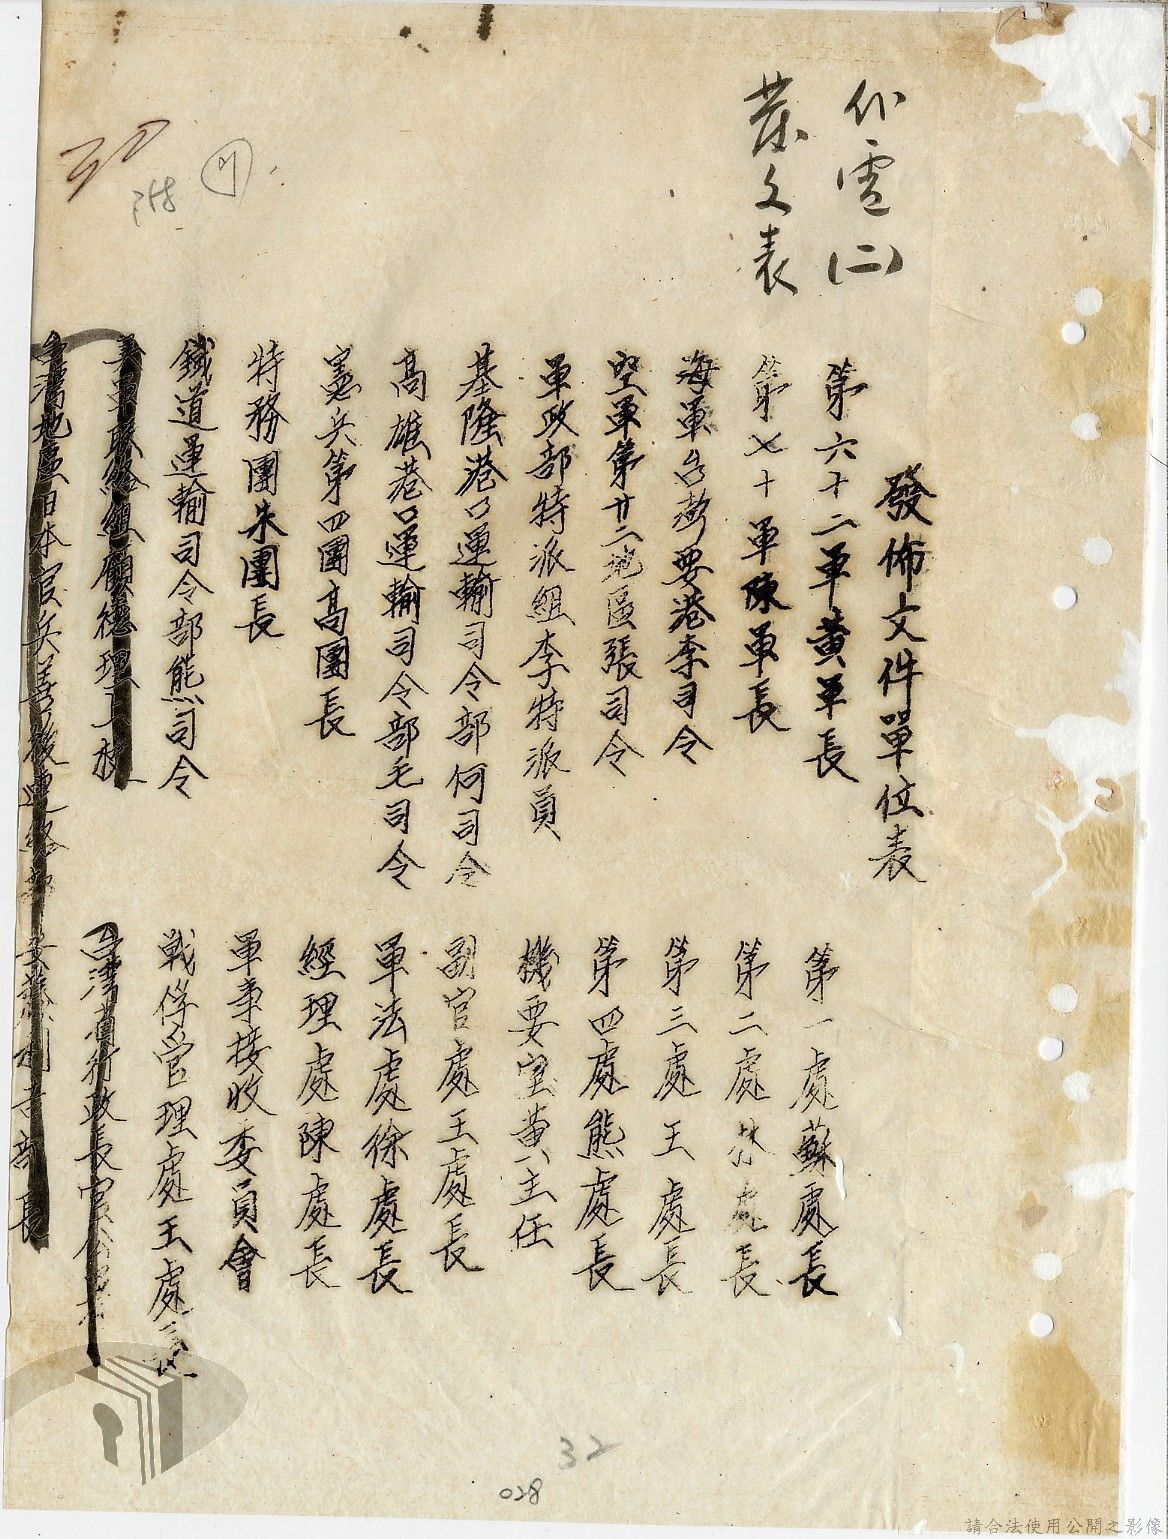 代電(二)
發文表
發佈文件單位表
第六十二軍黃軍長
第七十軍陳軍長
海軍台澎要港李司令
空軍第廿二地區張司令
軍政部特派組李特派員
基隆港口運輸司令部何司令
高雄港口運輸司令部毛司令
憲兵第四團高團長
特務團朱團長
鐵道運輸司令部熊司令
美軍聯絡組顧德理上校
台灣地區日本官兵善後連絡部安藤利吉部長
第一處蘇處長
第二處林處長
第三處王處長
第四處熊處長
機要室黃主任
副官處王處長
軍法處徐處長
經理處陳處長
軍事接收委員會
戰俘管理處王處長
台灣省行政長官公署
32
028
請合法使用公開之影像